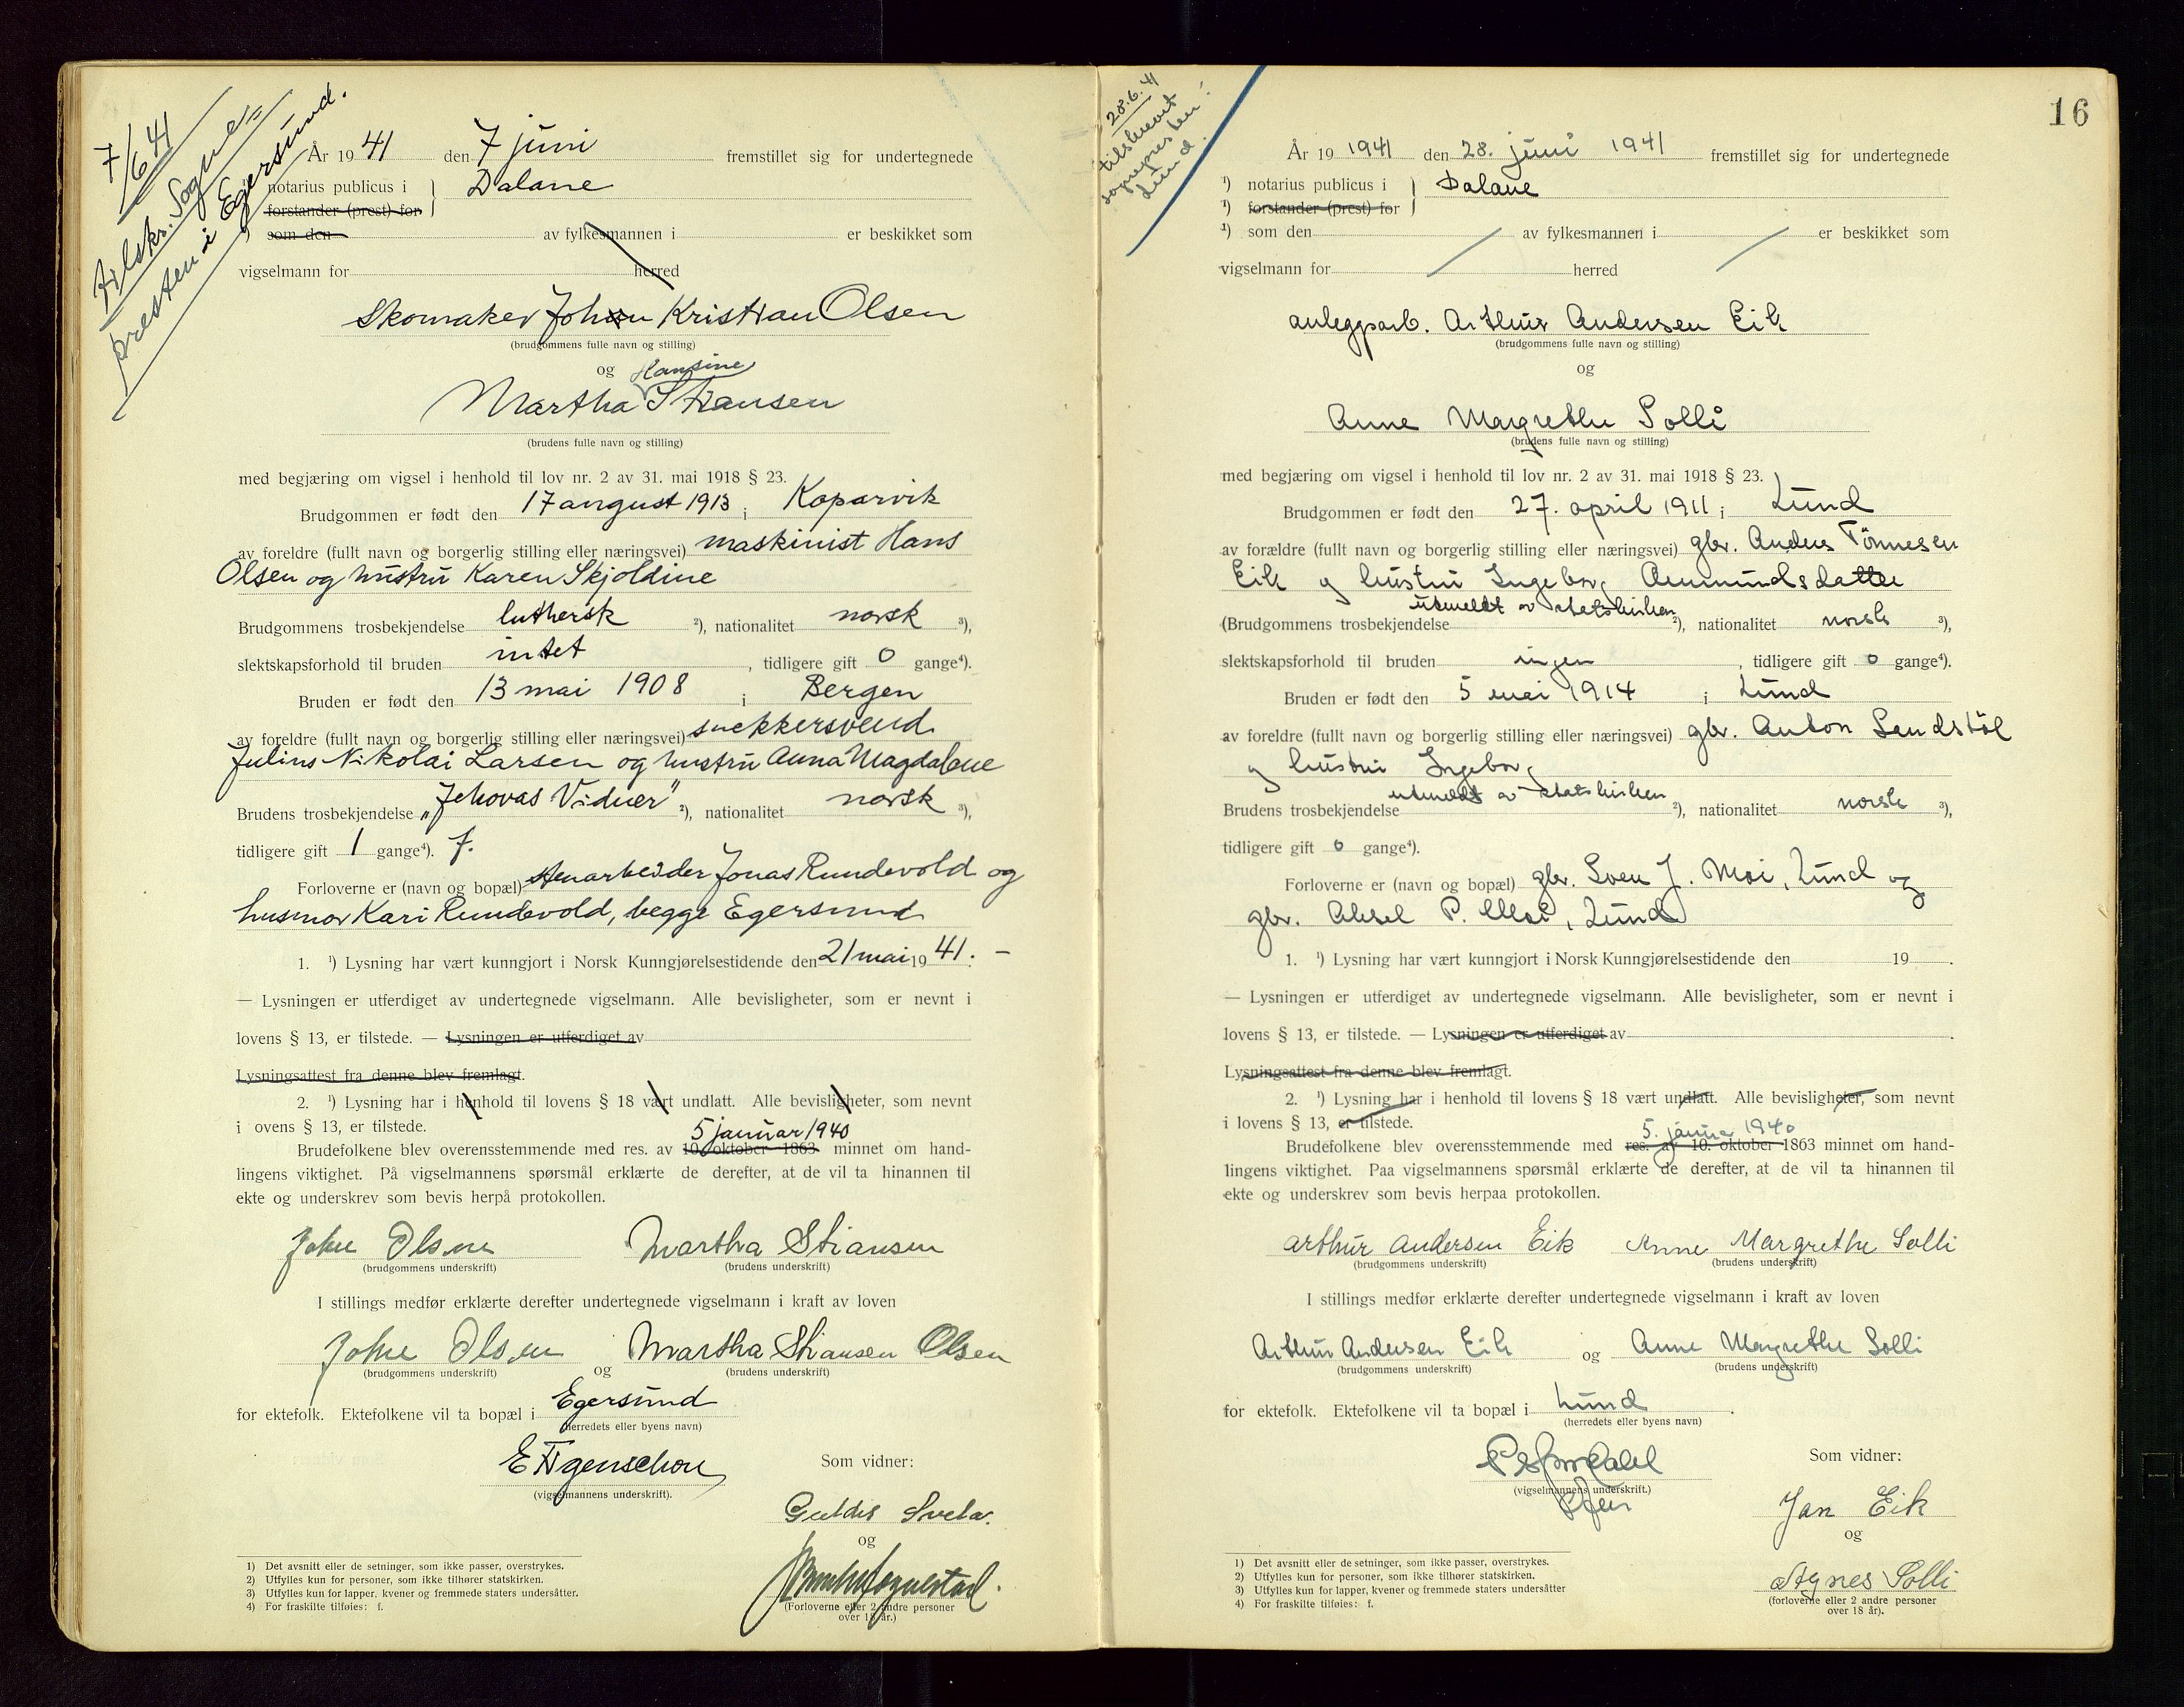 7/6 41
tilskr. Sogne=
presten i Egersund.
År 1941 den 7 juni fremstillet sig for undertegnede
notarius publicus i Dalane
forstander (prest) for
som den av fylkesmannen i er beskikket som
vigselmann for herred
Skomaker John Kristian Olsen
(brudgommens fulle navn og stilling)
og Hansine
Martha Stiansen
(brudens fulle navn og stilling)
med begjæring om vigsel i henhold til lov nr. 2 av 31. mai 1918 § 23.
Brudgommen er født den 17 august 1913 i Kopervik
av foreldre (fullt navn og borgerlig stilling eller næringsvei) maskinist Hans
Olsen og hustru Karen Skjoldine
Brudgommens trosbekjendelse luthersk ²), nationalitet norsk ³),
slektskapsforhold til bruden intet, tidligere gift 0 gange⁴).
Bruden er født den 13 mai 1908 i Bergen
av foreldre (fullt navn og borgerlig stilling eller næringsvei) snekkersvend
Julius Nikolai Larsen og hustru Anna Magdalene
Brudens trosbekjendelse „Jehovas Vidner" ²), nationalitet norsk ³),
tidligere gift 1 gange⁴). f.
Forloverne er (navn og bopæl) stenarbeider Jonas Rundevold og
husmor Kari Rundevold, begge Egersund
1. ¹) Lysning har vært kunngjort i Norsk Kunngjørelsestidende den 21 mai 1941. —
— Lysningen er utferdiget av undertegnede vigselmann. Alle bevisligheter, som er nevnt i
lovens § 13, er tilstede. — Lysningen er utferdiget av
Lysningsattest fra denne blev fremlagt.
2. ¹) Lysning har i henhold til lovens § 18 vært undlatt. Alle bevisligheter, som nevnt
i ovens § 13, er tilstede.
5 januar 1940
Brudefolkene blev overensstemmende med res. av 10. oktober 1863 minnet om hand-
lingens viktighet. På vigselmannens spørsmål erklærte de derefter, at de vil ta hinannen til
ekte og underskrev som bevis herpå protokollen.
John Olsen Martha Stiansen
(brudgommens underskrift) (brudens underskrift)
I stillings medfør erklærte derefter undertegnede vigselmann i kraft av loven
John Olsen og Martha Stiansen Olsen
(brudgommens underskrift) (brudens underskrift)
for ektefolk. Ektefolkene vil ta bopæl i Egersund
(herredets eller byens navn)
Som vidner:
(vigselmannens underskrift).
og
(Forloverne eller 2 andre personer
over 18 år.)
1) Det avsnitt eller de setninger, som ikke passer, overstrykes.
2) Utfylles kun for personer, som ikke tilhører statskirken.
3) Utfylles kun for lapper, kvener og fremmede staters undersåtter.
4) For fraskilte tilføies: f.
16
28.6.41
tilskrevet
sognepresten i
Lund.
År 19 1941 den 28. juni 1941 fremstillet sig for undertegnede
¹) notarius publicus i Dalane
¹) forstander (prest) for
¹) som den av fylkesmannen i er beskikket som
vigselmann for herred
anleggsarb. Arthur Andersen Eik
(brudgommens fulle navn og stilling)
og
Anne Margrethe Solli
(brudens fulle navn og stilling)
med begjæring om vigsel i henhold til lov nr. 2 av 31. mai 1918 § 23.
Brudgommen er født den 27. april 1911 i Lund
av forældre (fullt navn og borgerlig stilling eller næringsvei) gbr. Anders Tönnesen
Eik og hustru Ingeborg Aamundsdatter
utmeldt av statskirken
(Brudgommens trosbekjendelse ²), nationalitet norsk ³),
slektskapsforhold til bruden ingen, tidligere gift 0 gange⁴).
Bruden er født den 5 mai 1914 i Lund
av foreldre (fullt navn og borgerlig stilling eller næringsvei) gbr. Anton Sandstöl
og hustru Ingeborg
utmeldt av statskirken
Brudens trosbekjendelse ²), nationalitet norsk ³),
tidligere gift 0 gange⁴).
Forloverne er (navn og bopæl) gbr. Sven J. Moi, Lund og
gbr. Aksel P. Moi, Lund
1. ¹) Lysning har vært kunngjort i Norsk Kunngjørelsestidende den 19 .
— Lysningen er utferdiget av undertegnede vigselmann. Alle bevisligheter, som er nevnt i
lovens § 13, er tilstede. — Lysningen er utferdiget av .
Lysningsattest fra denne blev fremlagt.
2. ¹) Lysning har i henhold til lovens § 18 vært undlatt. Alle bevisligheter, som nevnt
i lovens § 13, er tilstede.
5. januar 1940
Brudefolkene blev overensstemmende med res. av 10. oktober 1863 minnet om hand-
lingens viktighet. Paa vigselmannens spørsmål erklærte de derefter, at de vil ta hinannen til
ekte og underskrev som bevis herpaa protokollen.
Arthur Andersen Eik Anne Margrethe Solli
(brudgommens underskrift) (brudens underskrift)
I stillings medfør erklærte derefter undertegnede vigselmann i kraft av loven
Arthur Andersen Eik og Anne Margrethe Solli
(brudgommens underskrift) (brudens underskrift)
for ektefolk. Ektefolkene vil ta bopæl i Lund .
(herredets eller byens navn)
Som vidner:
(vigselmannens underskrift.)
Jan Eik
og
Agnes Solli
(forloverne eller 2 andre personer
over 18 år).
1) Det avsnitt eller de setninger, som ikke passer, overstrykes.
2) Utfylles kun for personer, som ikke tilhører statskirken.
3) Utfylles kun for lapper, kvener og fremmede staters undersåtter
4) For fraskilte tilføies: f.